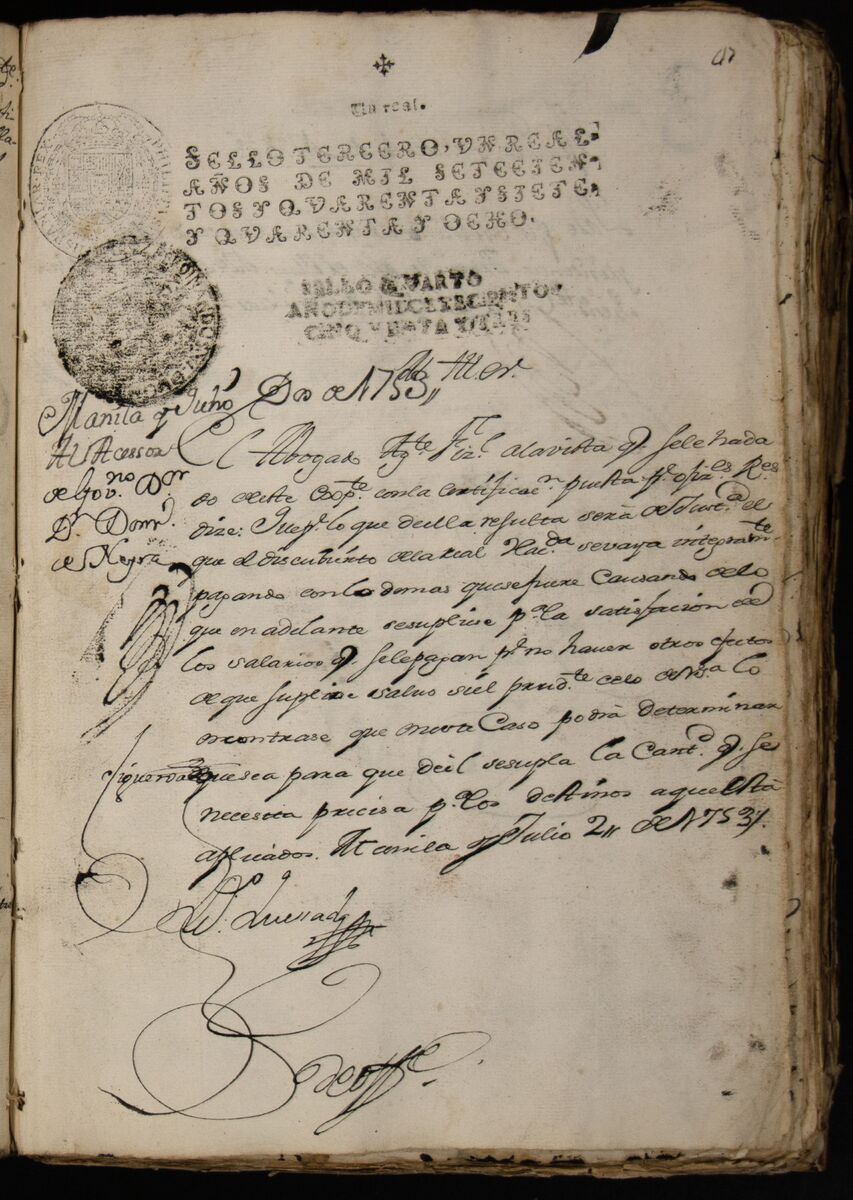 47
Un real.
SELLO TERCERO, UN REAL,
AÑOS DE MIL SETECIEN-
TOS Y QVARENTA Y SIETE,
Y QVARENTA Y OCHO.
SELLO QVARTO
AÑO DE MIL SETECIENTOS
CINQVENTA Y TRES
Manila y Dos de 1753,,
Al Acessor
de Gov.no D.or
D.n Dom.o
de Neyra
M. Y. S.or
El Abogado Ag.te Fiz.l a la vista q. se le ha da
do de este Exp.te con la certificac.n puesta p.r ofiz.es R.es
dize: Que p.r lo que de ella resulta será de Just.a el
que el discubierto de la real Haz.da se vaya integram.te
pagando con lo demas que se fuere causando de lo
que en adelante se supliese p.a la satisfacion de
los salarios q. se le pagan p.r no haver otros efectos
de que suplirse salvo si el prud.te celo de V.S.a lo
encontrase que en este caso podrá determinar
que sea para que de el se supla la Cant.d q. se
necesita precisa p.a los destinos a que está
aplicados. Manila y Julio 2,, de 1753,,
L.do Quesada